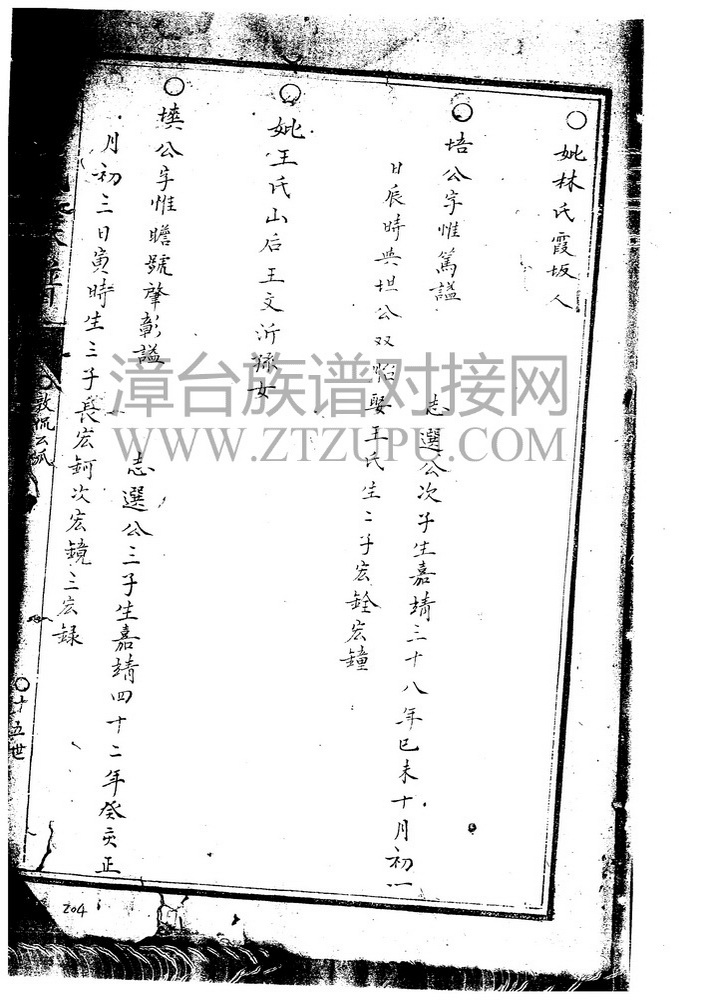 ○妣林氏霞坂人
○培公字惟篤謚 志選公次子生嘉靖三十八年己未十月初一
日辰時與坦公双怡娶王氏生二子宏銓宏鐘
○妣王氏山后王文沂孫女
○墣公字惟瞻號肇彰謚 志選公三子生嘉靖四十二年癸亥正
月初三日寅時生三子長宏鈳次宏鏡三宏録
○敦悅公派 ○十五世
204
漳台族谱对接网
WWW.ZTZUPU.COM